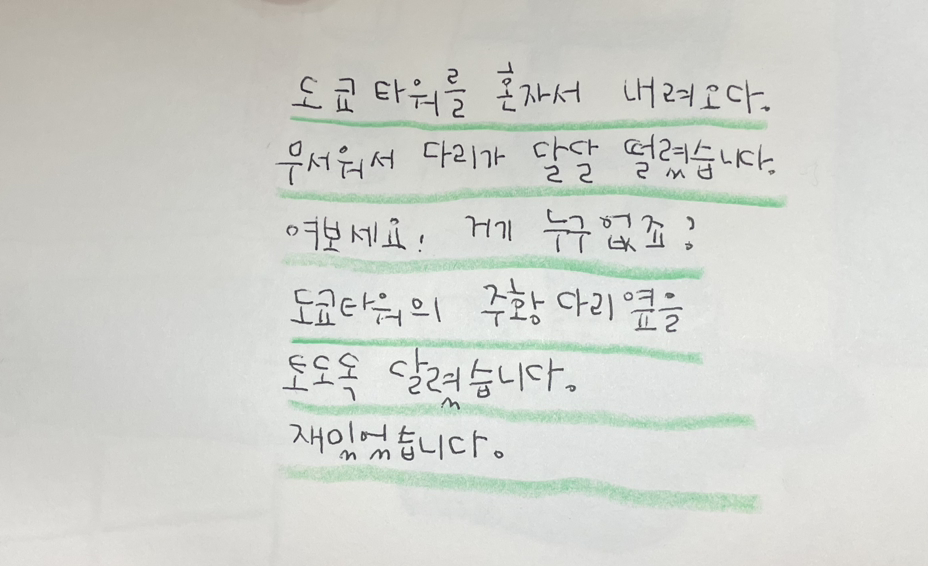 도쿄타워를 혼자서 내려오다.
무서워서 다리가 달달 떨렸습니다.
여보세요! 거기 누구 없죠?
도쿄타워의 주황 다리 옆을
토도독 달렸습니다.
재밌었습니다.